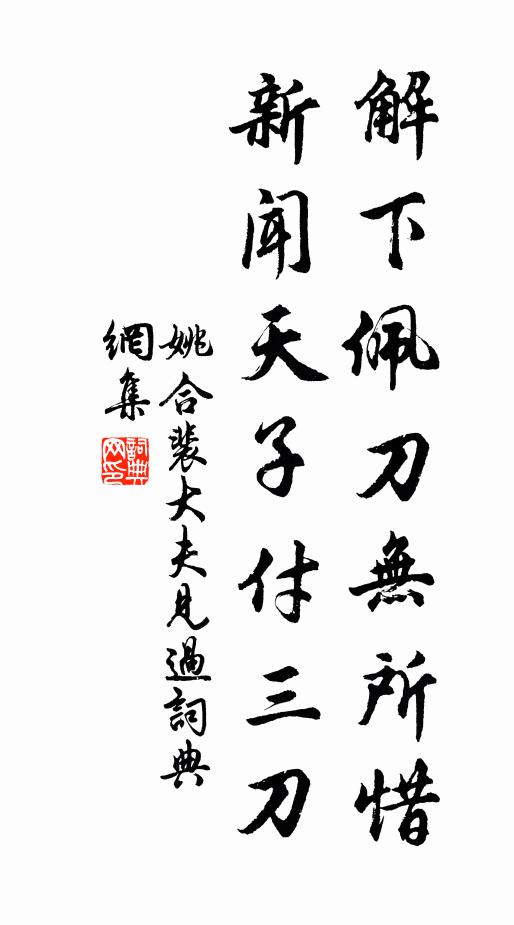 解下佩刀無所惜
新聞天子付三刀
姚合裴大夫見過詞典
網集
詞典網印